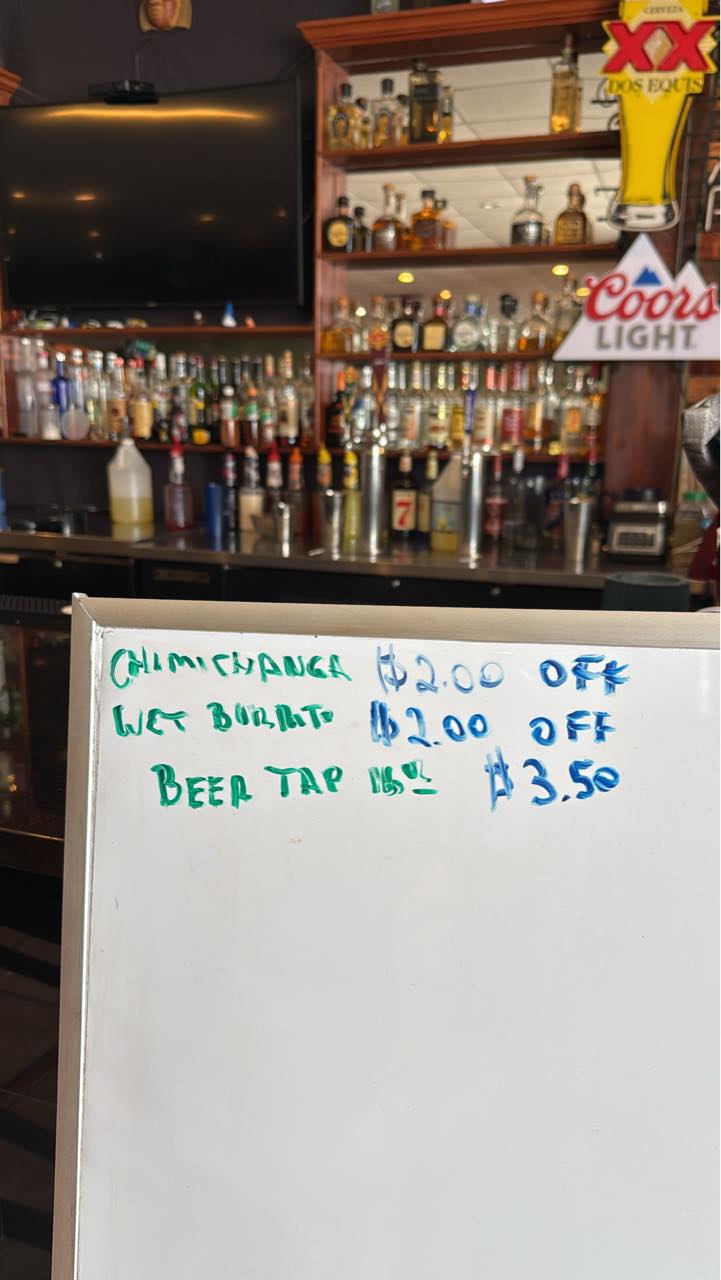 CERVEZA
XX
DOS EQUIS
Coors
LIGHT
7
CHIMICHANGA $2.00 OFF
WET BURRITO $2.00 OFF
BEER TAP 16oz $3.50